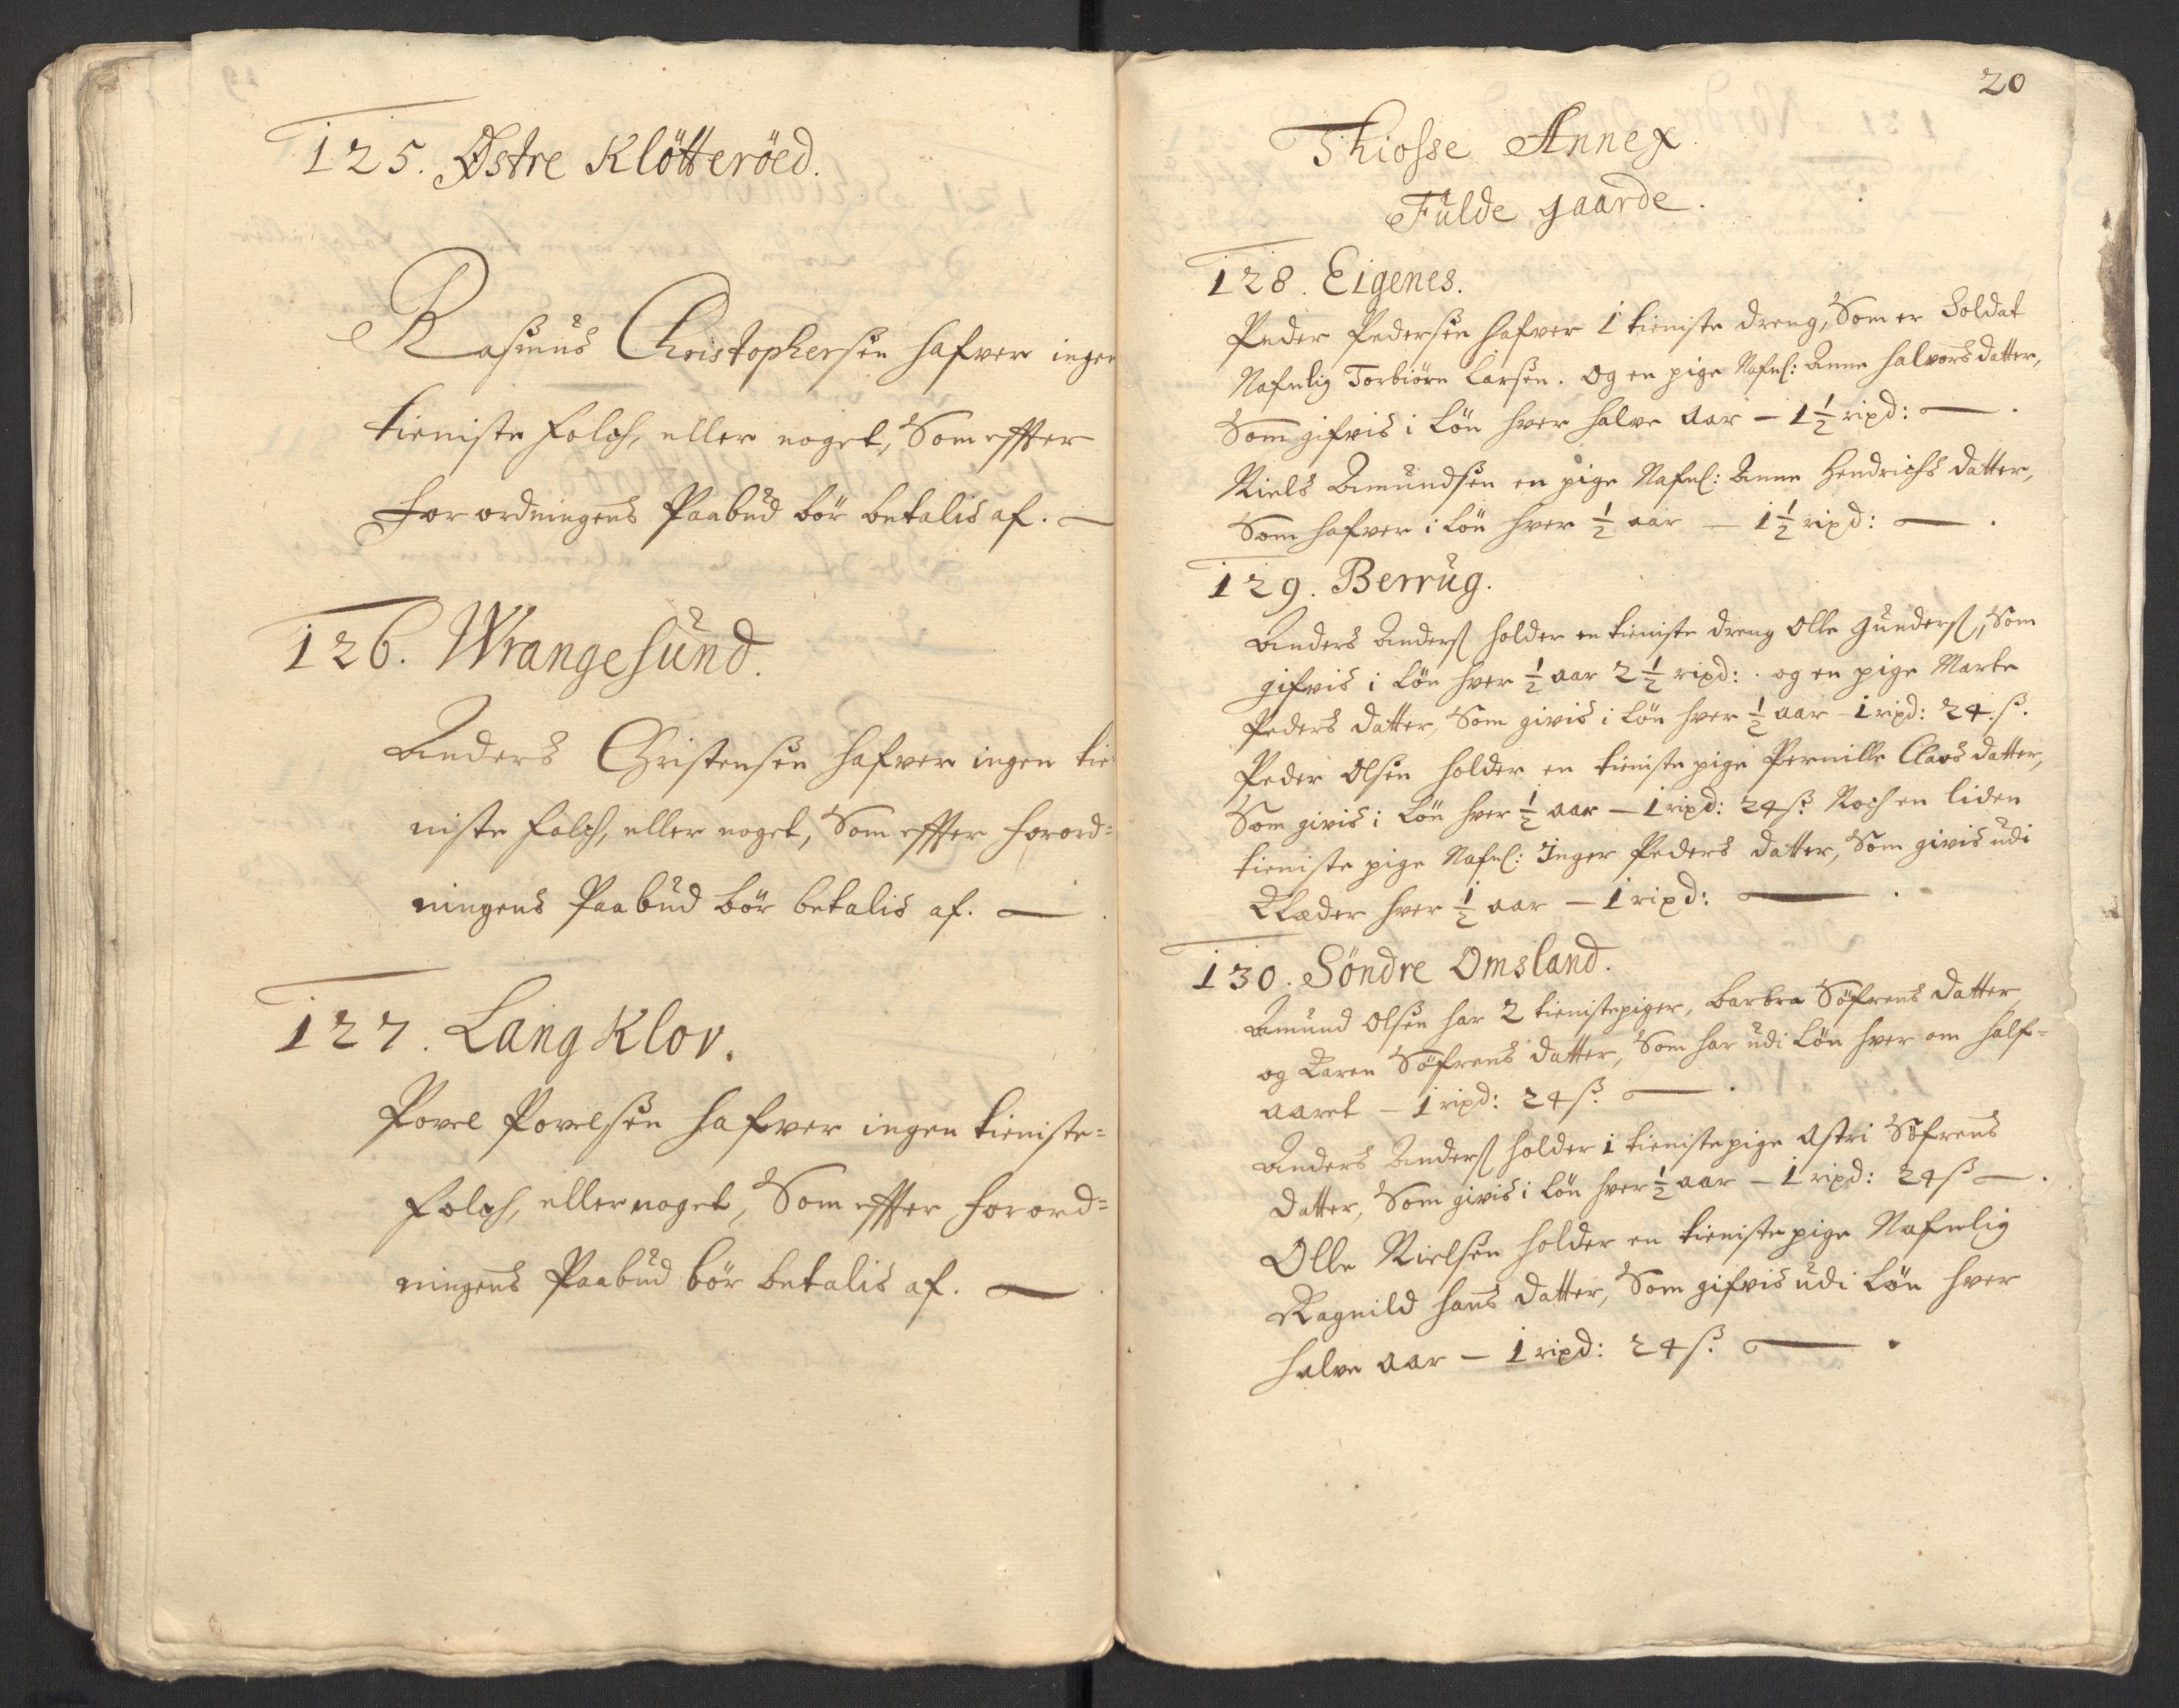 125. Østre Klötteröed.
Rasmus Christophersen hafver ingen
tieniste folch, eller noget, Som effter
Forordningens Paabud bör betalis af. —
126. Wrangesund.
Anders Christensen hafver ingen tie-
niste folch, eller noget, Som effter forord=
ningens Paabud bör betalis af. —
127. Lang Klov.
Povel Povelsen hafver ingen tieniste=
folch, eller noget, Som effter forord=
ningens Paabud bör betalis af. —
20
Thiosse Annex.
Fulde gaarde.
128. Eigenes.
Peder Pedersen hafver 1 tieniste dreng, Som er Soldat
Nafnlig Torbiörn Larsen. Og en pige Nafnl: Anne Halvors datter,
Som gifvis i Lön hver halve Aar — 1½ rixd: —
Niels Amundsen en pige Nafnl: Anne Hendrichs datter,
Som hafver i Lön hver ½ aar — 1½ rixd: —
129. Berrug.
Anders Anderß holder en tieniste dreng Olle Gunderß, Som
gifvis i Lön hver ½ aar 2½ rixd: . og en pige Marte
Peders datter, Som givis i Lön hver ½ aar — 1 rixd: 24. ß.
Peder Olsen holder en tieniste pige Pernille Claus datter,
Som givis i Lön hver ½ aar — 1 rixd: 24 ß. Noch en liden
tieniste pige Nafnl: Inger Peders datter, Som givis udi
Klæder hver ½ aar — 1 rixd: —
130. Söndre Omsland.
Amund Olsen har 2 tienistepiger, Barbra Söfrens datter,
og Karen Söfrens datter, Som har udi Lön hver om half=
aaret — 1 rixd: 24 ß. —
Anders Anderß holder 1 tienistepige Astri Söfrens
datter, Som givis i Lön hver ½ aar — 1 rixd: 24 ß —
Olle Nielsen holder en tieniste pige Nafnlig
Ragnild Hans datter, Som gifvis udi Lön hver
halve aar — 1 rixd: 24 ß. —